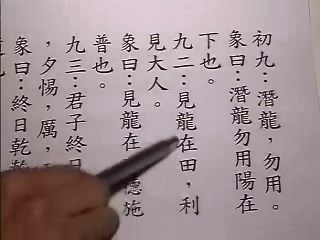 初九：潛龍，勿用。
象曰：潛龍勿用陽在
下也。
九二：見龍在田，利
見大人。
象曰：見龍在
德施
普也。
九三：君子終日
，夕惕，厲，
象曰：終日乾乾